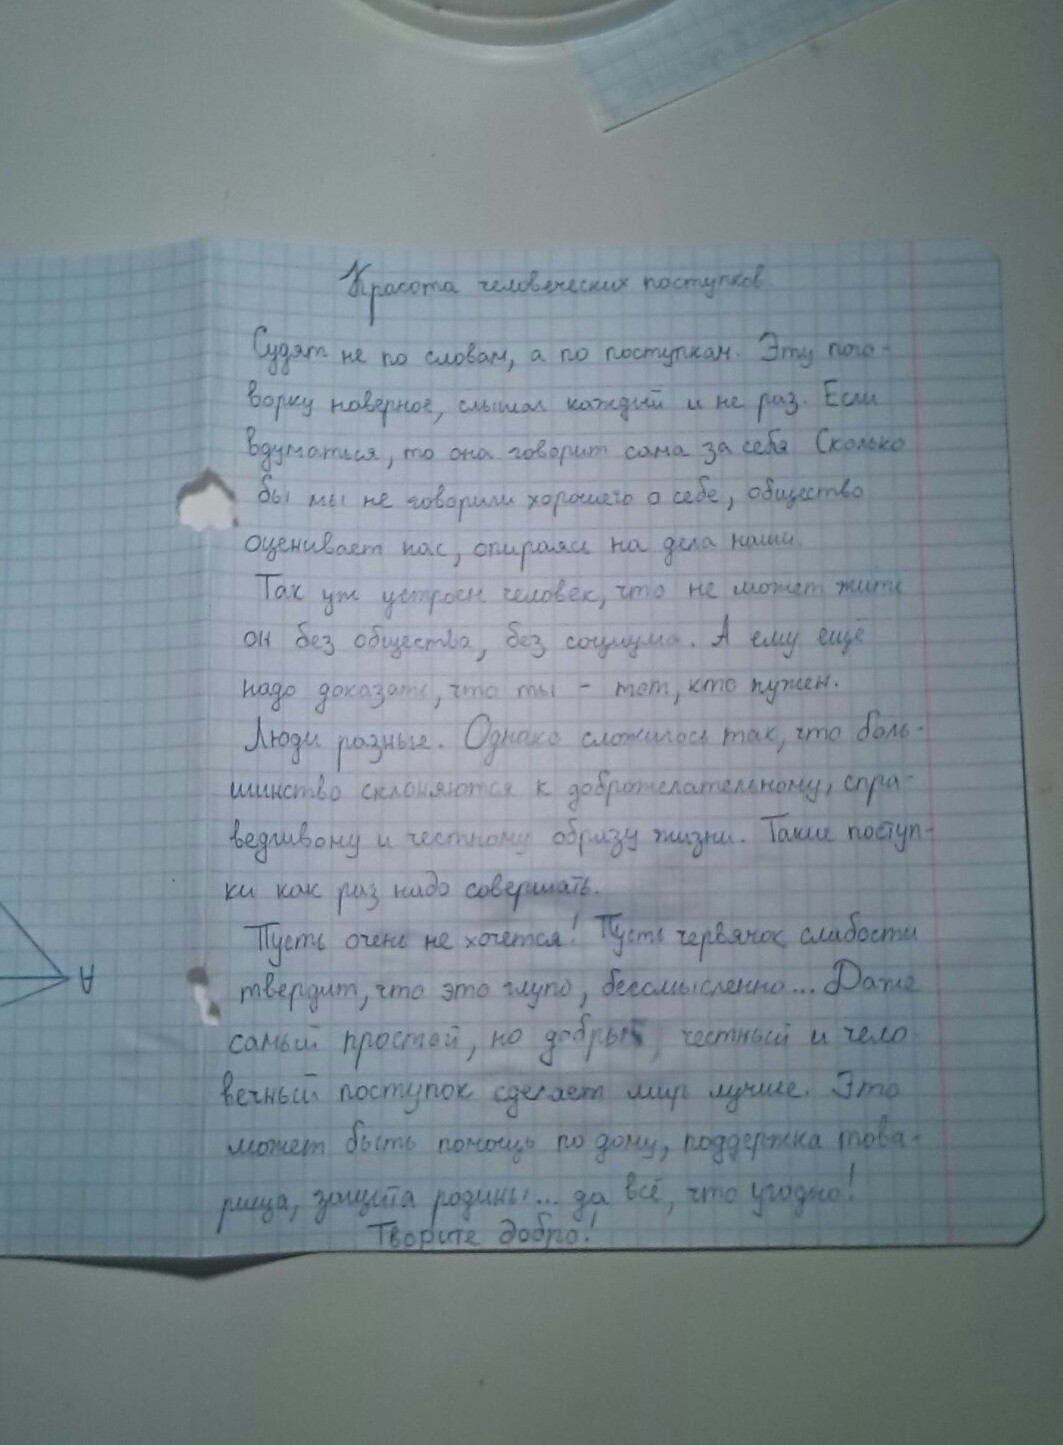 Красота человеческих поступков.
Судят не по словам, а по поступкам. Эту пого-
ворку наверное, слышал каждый и не раз. Если
вдуматься, то она говорит сама за себя Сколько
бы мы не говорили хорошего о себе, общество
оценивает нас, опираясь на дела наши.
Так уж устроен человек, что не может жить
он без общества, без социума. А ему ещё
надо доказать, что ты - тот, кто нужен.
Люди разные. Однако сложилось так, что боль-
шинство склоняются к доброжелательному, спра-
ведливому и честному образу жизни. Такие поступ-
ки как раз надо совершать.
Пусть очень не хочется! Пусть червячок слабости
твердит, что это глупо, бессмысленно... Даже
самый простой, но добрый, честный и чело-
вечный поступок сделает мир лучше. Это
может быть помощь по дому, поддержка това-
рища, защита родины... да всё, что угодно!
Творите добро!
A